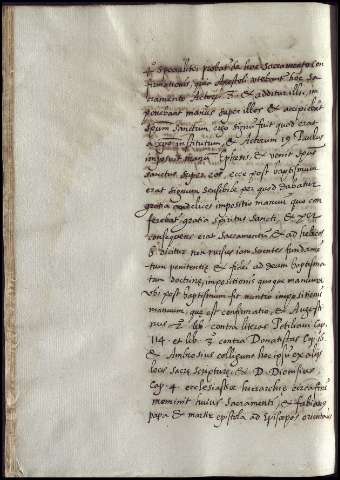 4º specialiter probat de hoc Sacramento con
firmationis, quia Apostoli utebantur hoc sa
cramento Actor. & additur illi, im
ponebant manus super illos & accipiebant
spum Sanctum, ergo signum fuit quod erat
a xpo institutum, & Actorum 19 Paulus
imposuit manum Ephesiis & venit spus
sanctus super eos, ecce post baptismum
erat signum sensibile per quod dabatur
gratia impositio manuum quo con
ferebat gratia spiritus sancti, & per
consequens erat Sacramentum, & ad hebreos
6 dicitur non rursus iacientes fundame
tum penitentiæ & fidei ad deum baptisma
tum doctrine, impositionis quoque manuum
Ubi post baptismum fit mentio impositionis
manuum, que est confirmatio, & Augusti
nus 2º lib contra literas Petiliani Cap.
114. et lib. 3 contra Donatistas Cap. 16
& Ambrosius colligunt hoc ipsum ex aliis
locis sacre scripture, & D. Dionisius
Cap. 4. ecclesiastice hierarchie circa finem
meminit huius sacramenti, & fabianus
papa & martir epistola ad Episcopos orientales